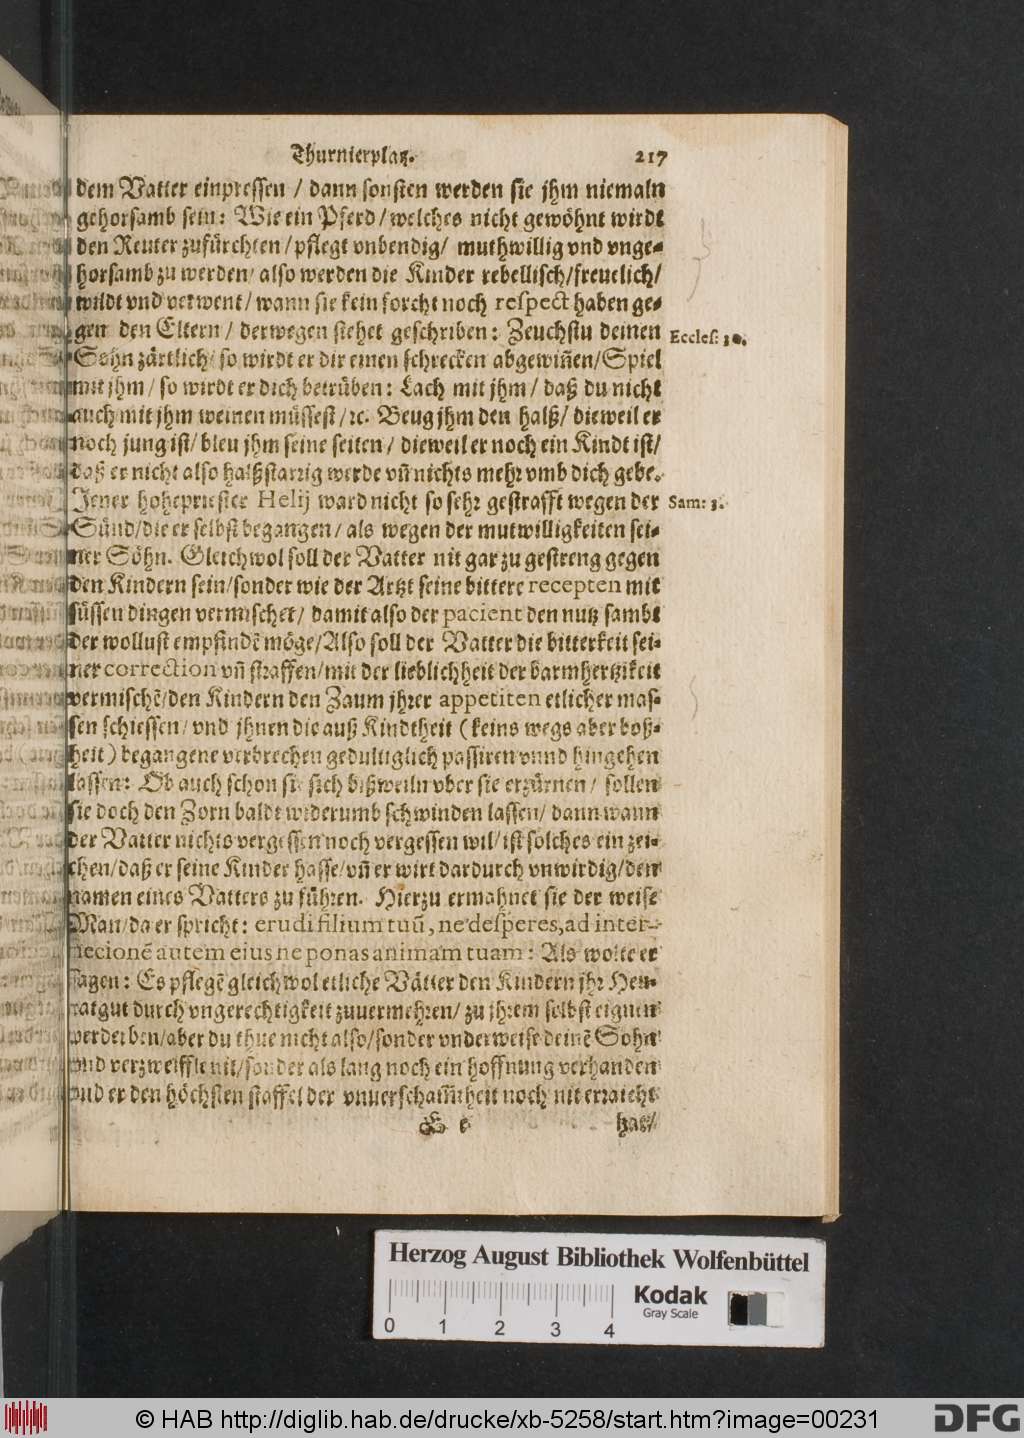 Thurnierplatz. 217
dem Vatter einpressen / dann sonsten werden sie jhm niemaln
gehorsamb sein: Wie ein Pferd / welches nicht gewöhnt wirdt
den Reuter zufürchten / pflegt vnbendig / muthwillig vnd vnge-
horsamb zu werden / also werden die Kinder rebellisch / freuelich /
wildt vnd verwent / wann sie kein forcht noch respect haben ge-
gen den Eltern / derwegen stehet geschriben: Zeuchstu deinen
Eccles: 30.
Sohn zärtlich / so wirdt er dir einen schrecken abgewiñen / Spiel
mit jhm / so wirdt er dich betrüben: Lach mit jhm / daß du nicht
auch mit jhm weinen müssest / ꝛc. Beug jhm den halß / dieweil er
noch jung ist / bleu jhm seine seiten / dieweil er noch ein Kindt ist /
daß er nicht also halßstarrig werde vñ nichts mehr vmb dich gebe.
Jener hohepriester Helij ward nicht so sehr gestrafft wegen der
Sam: 3.
Sünd / die er selbst begangen / als wegen der mutwilligkeiten sei-
ner Söhn. Gleichwol soll der Vatter nit gar zu gestreng gegen
den Kindern sein / sonder wie der Artzt seine bittere recepten mit
süssen dingen vermischet / damit also der pacient den nutz sambt
der wollust empfindẽ möge / Also soll der Vatter die bitterkeit sei-
ner correction vñ straffen / mit der lieblichheit der barmhertzikeit
vermischẽ / den Kindern den Zaum jhrer appetiten etlicher mas-
sen schiessen / vnd jhnen die auß Kindtheit (keins wegs aber boß-
heit) begangene verbrechen gedultiglich passiren vnnd hingehen
lassen: Ob auch schon sie sich bißweiln vber sie erzürnen / sollen
sie doch den Zorn baldt widerumb schwinden lassen / dann wann
der Vatter nichts vergessen noch vergessen wil / ist solches ein zei-
chen / daß er seine Kinder hasse / vñ er wirt dardurch vnwirdig / den
namen eines Vatters zu führen. Hierzu ermahnet sie der weise
Man / da er spricht: erudi filium tuũ, ne desperes, ad inter-
necionẽ autem eius ne ponas animam tuam: Als wolte er
sagen: Es pflegẽ gleichwol etliche Vätter den Kindern jhr Heu-
ratgut durch vngerechtigkeit zuuermehren / zu jhrem selbst eignen
verderben / aber du thue nicht also / sonder vnderweise deinẽ Sohn
vnd verzweiffle nit / sonder als lang noch ein hoffnung verhanden
vnd er den höchsten staffel der vnuerschamtheit noch nit erraicht
E e hat /
Herzog August Bibliothek Wolfenbüttel
Kodak
Gray Scale
0 1 2 3 4
© HAB http://diglib.hab.de/drucke/xb-5258/start.htm?image=00231
DFG